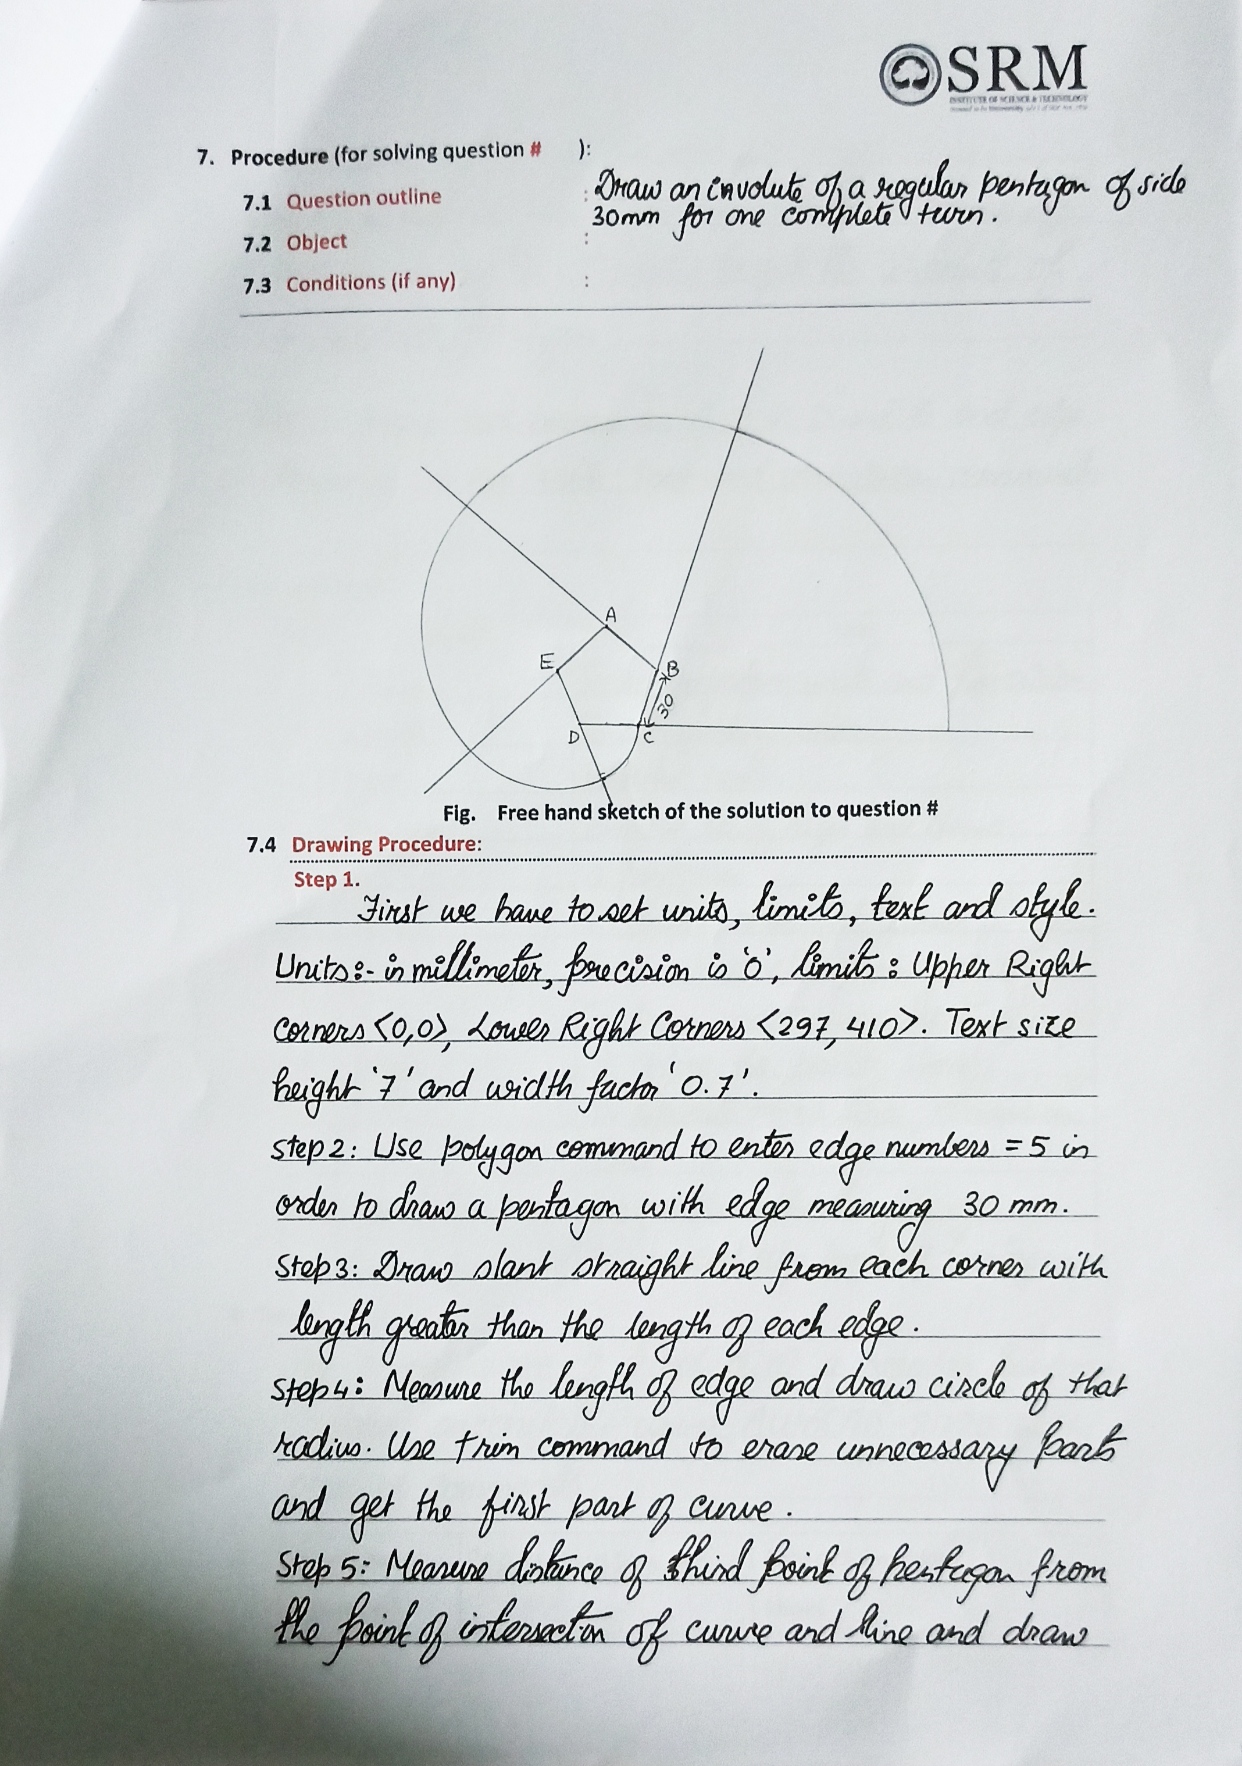 SRM
INSTITUTE OF SCIENCE & TECHNOLOGY
7. Procedure (for solving question # ):
7.1 Question outline : Draw an involute of a regular pentagon of side
30mm for one complete turn.
7.2 Object :
7.3 Conditions (if any) :
A
E
B
30
D
C
Fig. Free hand sketch of the solution to question #
7.4 Drawing Procedure:
Step 1.
First we have to set units, limits, text and style.
Units:- in millimeter, precision is '0', limits : Upper Right
Corners <0,0>, Lower Right Corners <297,410>. Text size
height '7' and width factor '0.7'.
Step 2: Use polygon command to enter edge numbers = 5 in
order to draw a pentagon with edge measuring 30 mm.
Step 3: Draw slant straight line from each corner with
length greater than the length of each edge.
Step 4: Measure the length of edge and draw circle of that
radius. Use trim command to erase unnecessary parts
and get the first part of curve.
Step 5: Measure distance of third point of pentagon from
the point of intersection of curve and line and draw